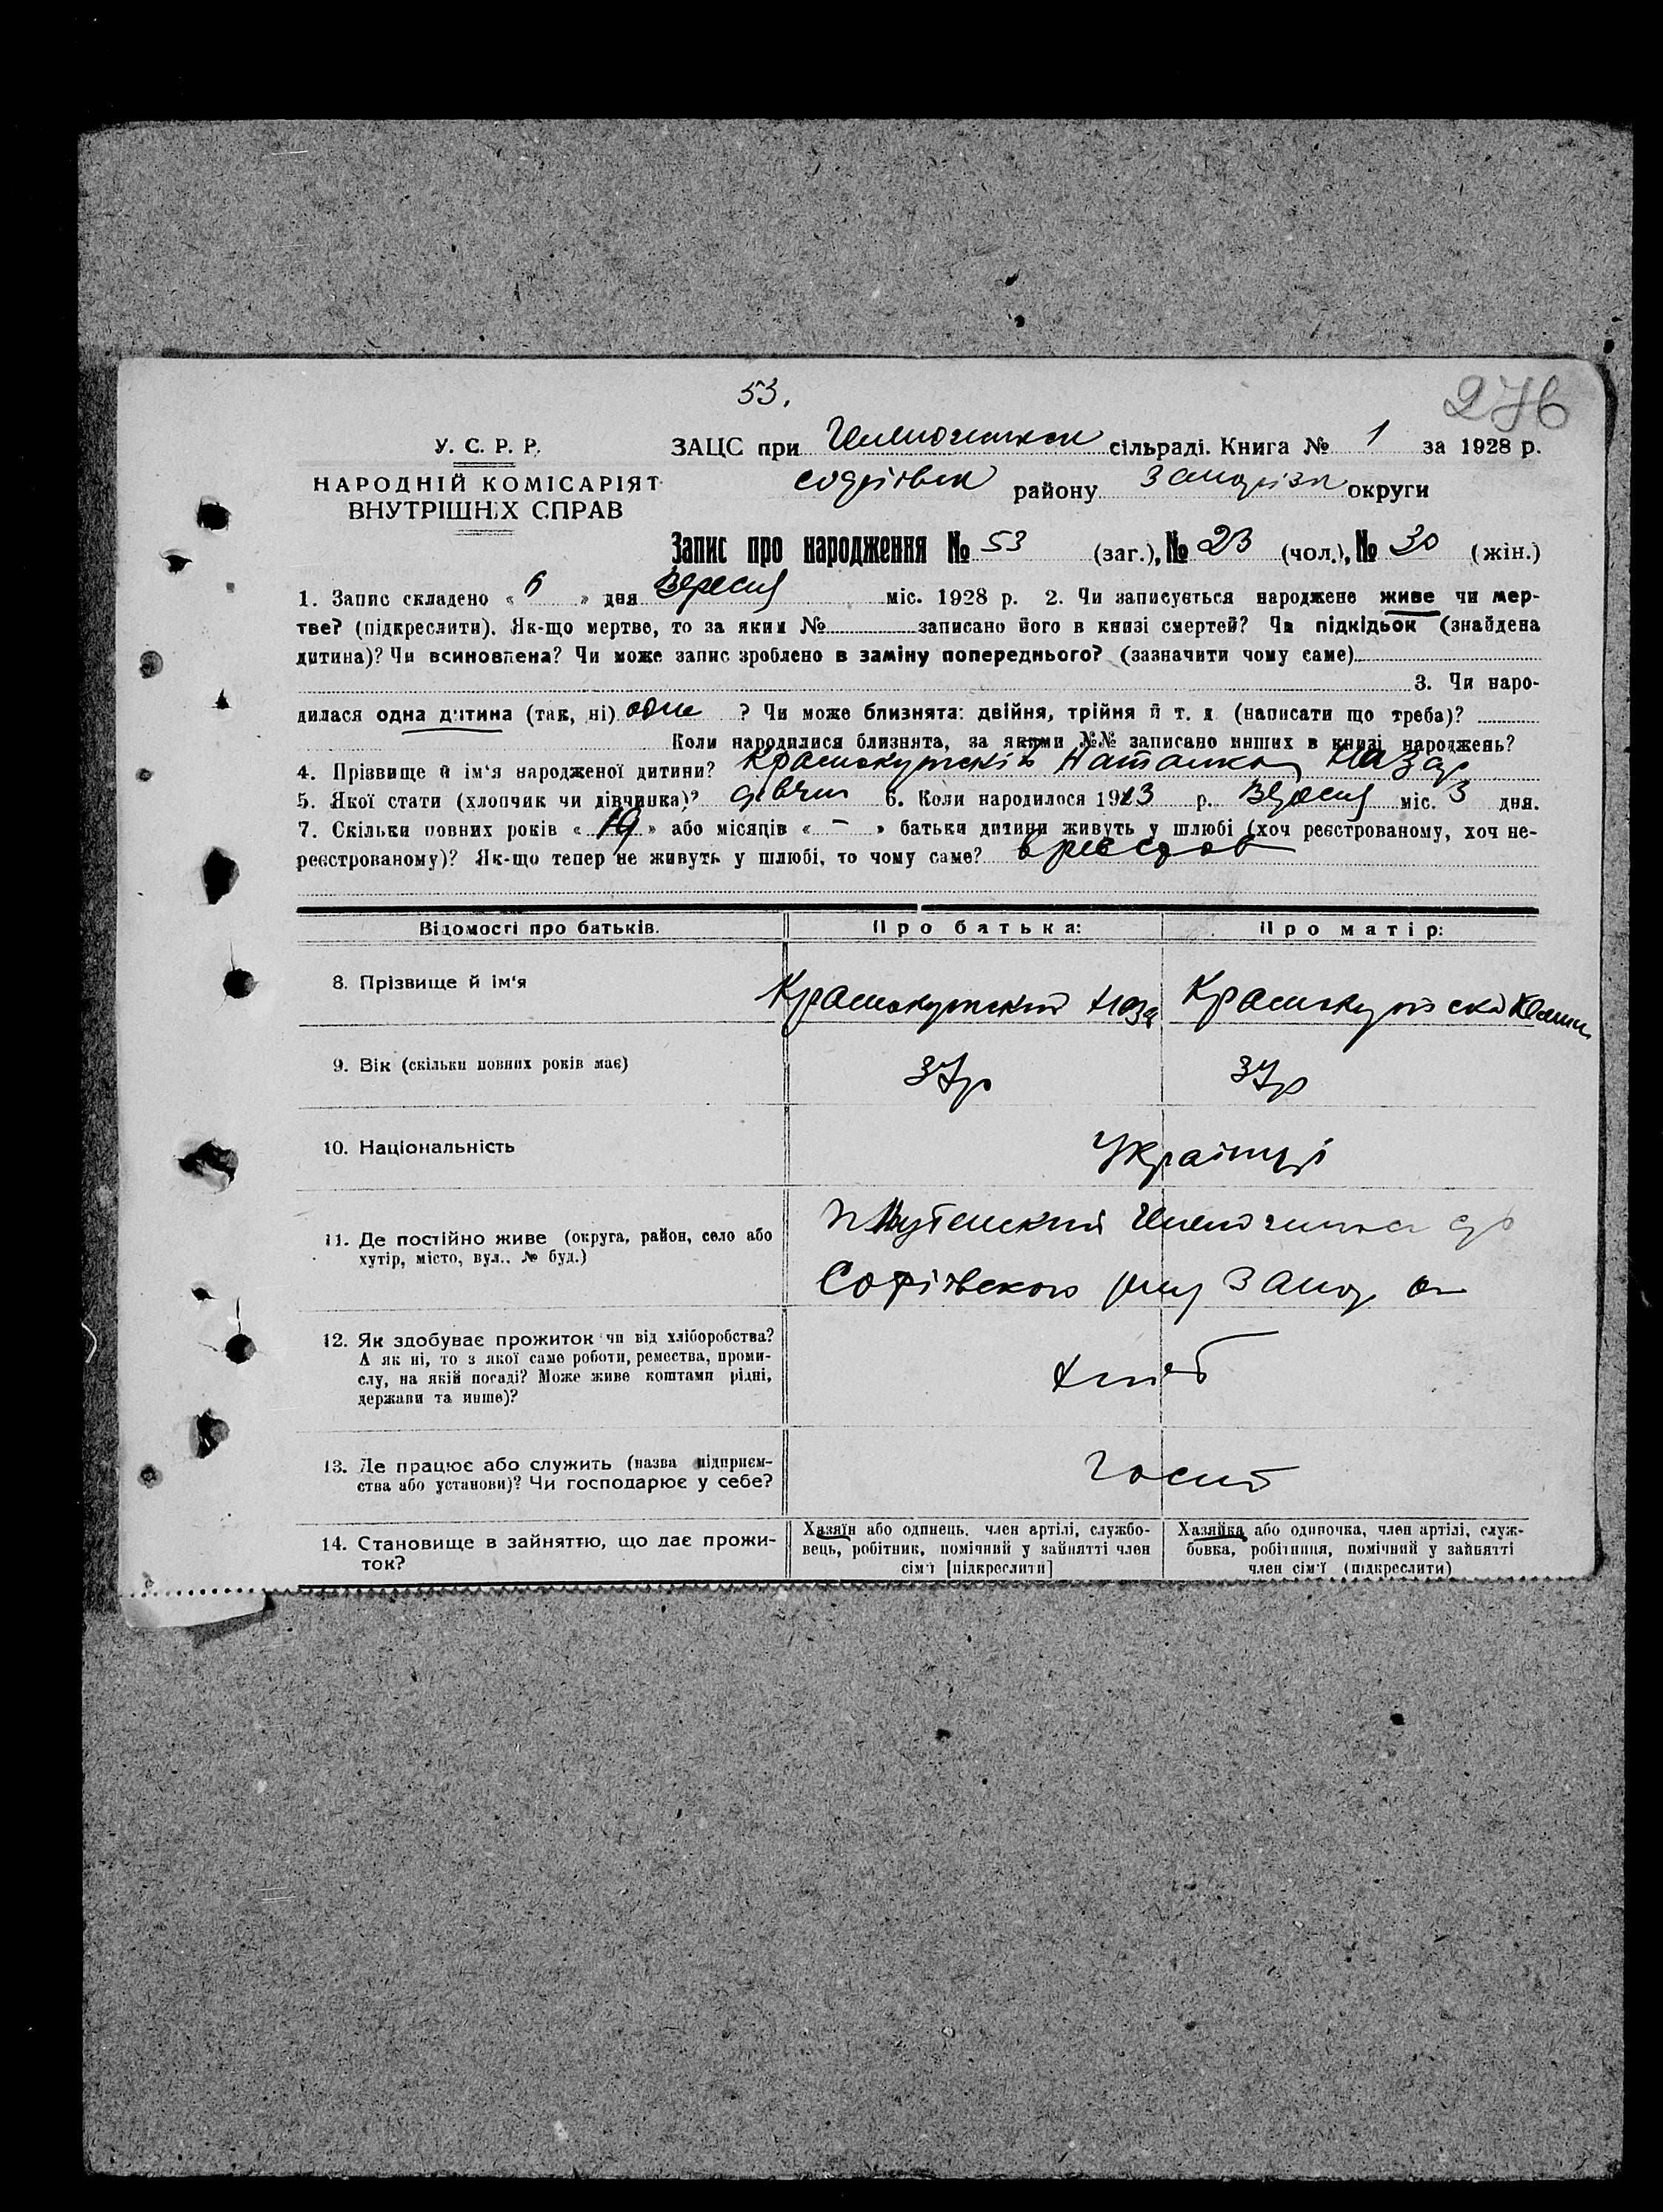 53.
276
У. С. Р. Р.
ЗАЦС при сільраді. Книга № 1 за 1928 р.
НАРОДНІЙ КОМІСАРІЯТ
ВНУТРІШНІХ СПРАВ
району округи
Запис про народження № 53 (заг.), № 23 (чол.), № 30 (жін.)
1. Запис складено « 6 » дня Вересня міс. 1928 р. 2. Чи записується народжене живе чи мер-
тве? (підкреслити). Як-що мертве, то за яким № записано його в книзі смертей? Чи підкідьок (знайдена
дитина)? Чи всиновлена? Чи може запис зроблено в заміну попереднього? (зазначити чому саме)
3. Чи наро-
дилася одна дитина (так, ні) одне ? Чи може близнята: двійня, трійня й т. д. (написати що треба)?
Коли народилися близнята, за якими №№ записано инших в книзі народжень?
4. Прізвище й ім'я народженої дитини? Назар
5. Якої стати (хлопчик чи дівчинка)? дівчин 6. Коли народилося 19 р. Вересня міс. 3 дня.
7. Скільки повних років « 19 » або місяців « – » батьки дитини живуть у шлюбі (хоч реєстрованому, хоч не-
реєстрованому)? Як-що тепер не живуть у шлюбі, то чому саме?
Відомості про батьків. Про батька: Про матір:
8. Прізвище й ім'я Краснокутский Наза Краснокутска
9. Вік (скільки повних років має) 37р 37р
10. Національність Українці
11. Де постійно живе (округа, район, село або
хутір, місто, вул., № буд.)
Софіївского Запор ок
12. Як здобуває прожиток чи від хліборобства?
А як ні, то з якої саме роботи, ремества, проми-
слу, на якій посаді? Може живе коштами рідні,
держави та инше)?
хліб
13. Де працює або служить (назва підприєм-
ства або установи)? Чи господарює у себе?
госп
14. Становище в зайняттю, що дає прожи-
ток?
Хазяїн або одинець, член артілі, службо-
вець, робітник, помічний у зайнятті член
сім'ї [підкреслити]
Хазяйка або одиночка, член артілі, служ-
бовка, робітниця, помічний у зайнятті
член сім'ї (підкреслити)